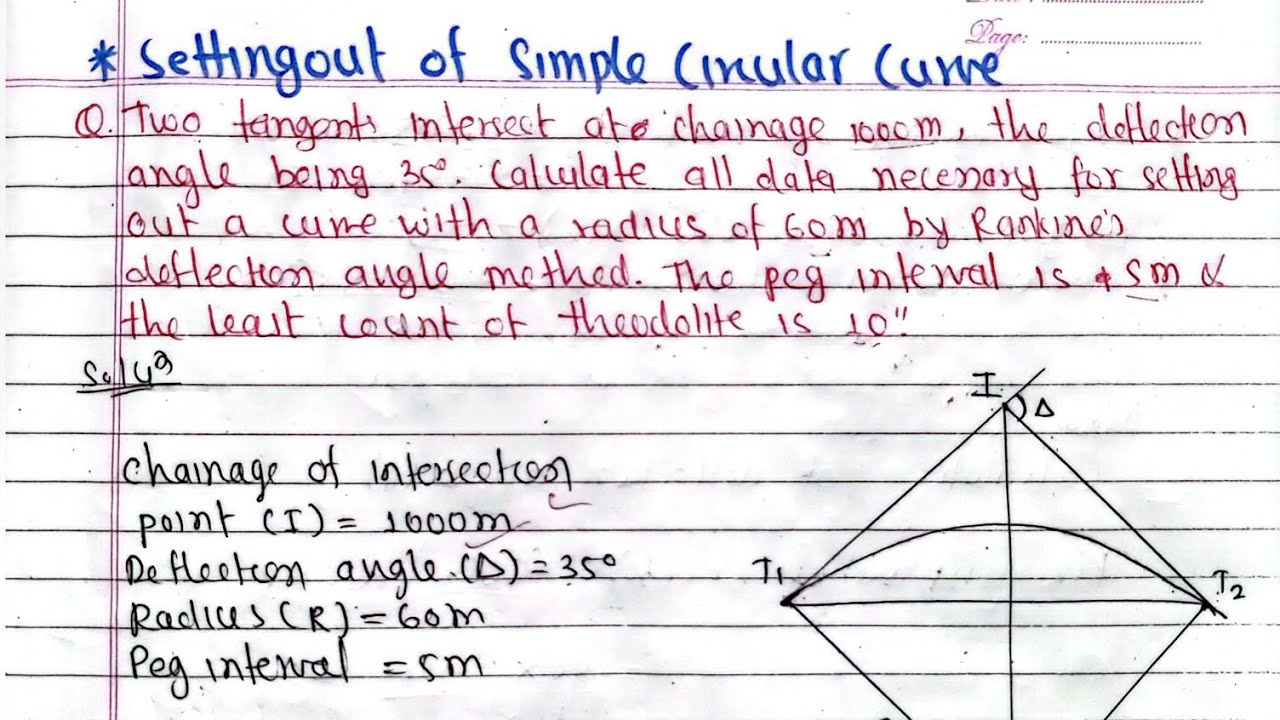 Page:
* Settingout of Simple Circular Curve
Q. Two tangents intersect at chainage 1000m, the deflection
angle being 35°. Calculate all data necessary for setting
out a curve with a radius of 60m by Rankine's
deflection angle method. The peg interval is 5m &
the least count of theodolite is 10"
Solun
I Δ
Chainage of intersection
point (I) = 1000m
Deflection angle.(Δ) = 35°
T1 T2
Radius (R) = 60m
Peg interval = 5m